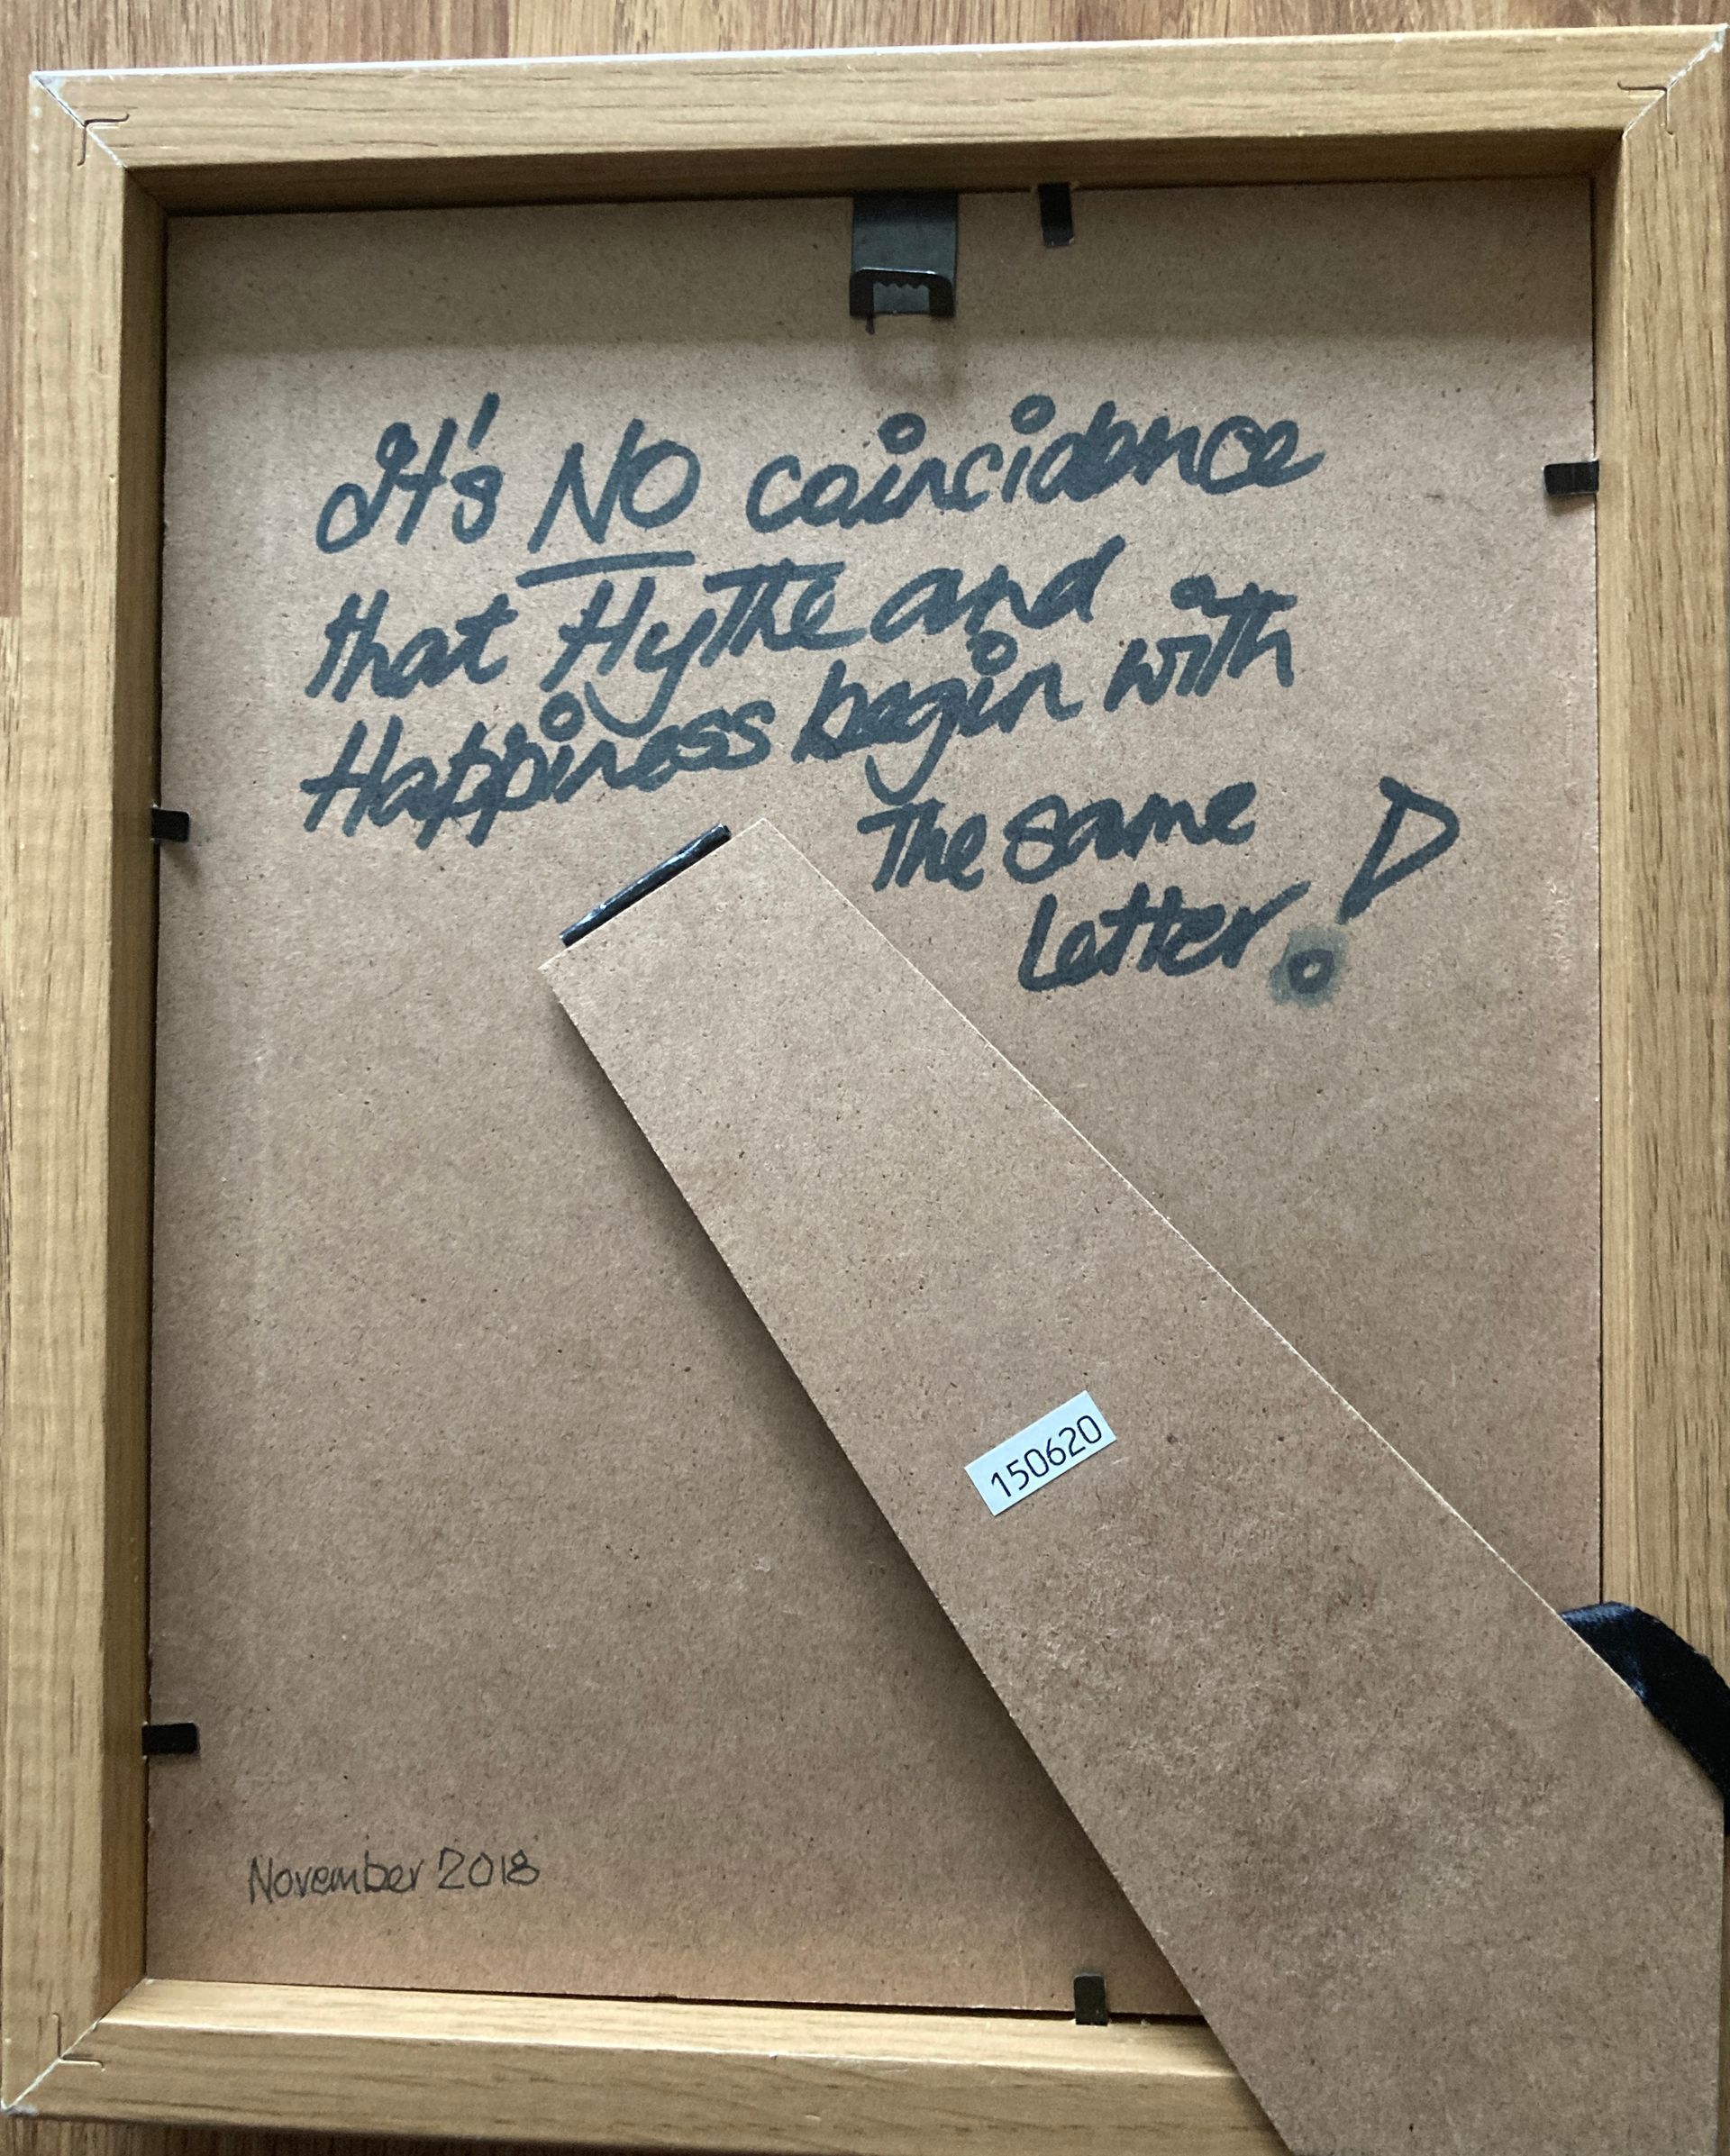 It's NO coincidence
that Hythe and
Happiness begin with
the same
letter!
150620
November 2018